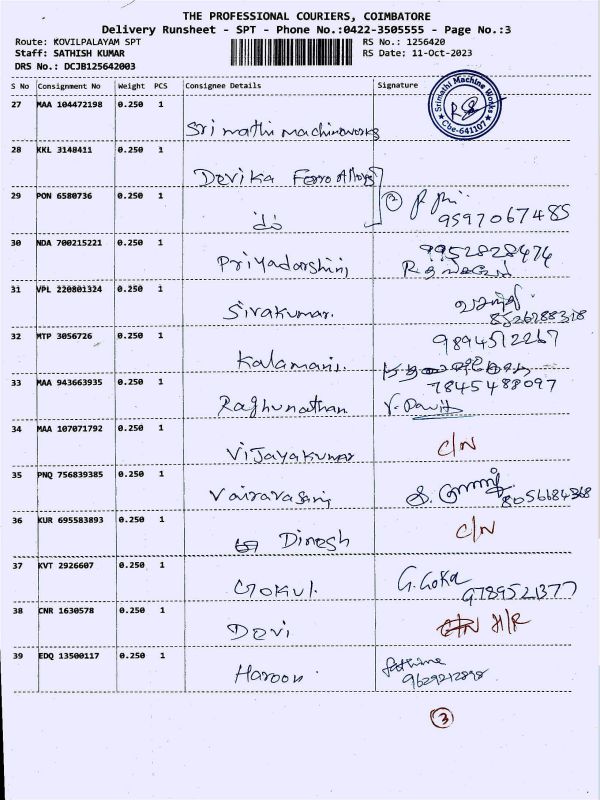 THE PROFESSIONAL COURIERS, COIMBATORE
Delivery Runsheet - SPT - Phone No.:0422-3505555 - Page No.:3
Route: KOVILPALAYAM SPT RS No.: 1256420
Staff: SATHISH KUMAR RS Date: 11-Oct-2023
DRS No.: DCJB125642003
S No Consignment No Weight PCS Consignee Details Signature
27 MAA 104472198 0.250 1 Sri mathi machineworks
Srimathi Machine Works
★ Cbe-641107 ★
28 KKL 3148411 0.250 1 Devika Ferro Alloys
29 PON 6580736 0.250 1 do 2
9597067485
30 NDA 700215221 0.250 1 Priyadarshini 9952828474
31 VPL 220801324 0.250 1 Sivakumar. 8526288318
32 MTP 3056726 0.250 1 Kalamani. 9894512267
33 MAA 943663935 0.250 1 Raghunathan 7845488097
34 MAA 107071792 0.250 1 Vijayakumar C/N
35 PNQ 756839385 0.250 1 8056684368
36 KUR 695583893 0.250 1 Dinesh C/N
37 KVT 2926607 0.250 1 Gokul. G. Goka 9789521377
38 CNR 1630578 0.250 1 Devi H/R
39 EDQ 13500117 0.250 1 Haroon. Fathima
9629212898
3